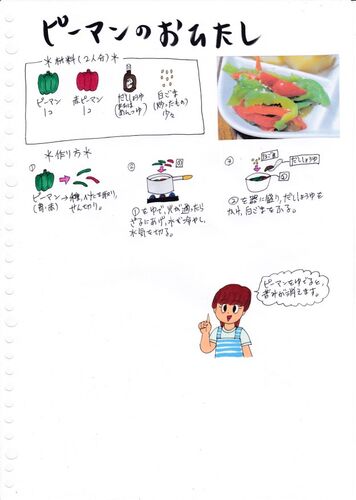 ピーマンのおひたし
＊材料(2人台)＊
ピーマン 1コ
赤ピーマン 1コ
だしじょうゆ (または めんつゆ)
白ごま (炒ったもの) 少々
＊作り方＊
①
ピーマン (青・赤) → 種、かたを取り、せん切り。
②
①をゆで、火が通ったら
ざるにあげ、水が冷やし、
水気を切る。
③
白ごま
だしじょうゆ
②
②を器に盛り、だしじょうゆを
かけ、白ごまをふる。
ピーマンをゆでると、
苦みが消えます。